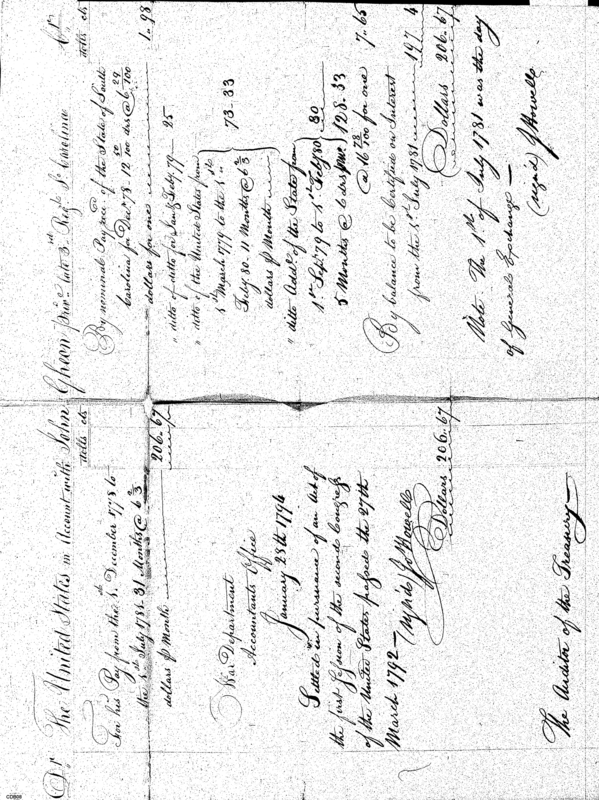 Dr The United States in Account with John Gheon priv.e late 3.rd Reg.t S.o Carolina Cr
dolls cts
For his Pay from the 1.st December 1778 to
the 1.st July 1781. 31 Months @ 6 2/3
dollars ⅌ Month 206..67
War Department
Accountants Office
January 28th 1794
Settled in pursuance of an Act of
the first Session of the second Congress
of the United States passed the 27th
March 1792 — (signed) J Howell
Dollars 206..67
The Auditor of the Treasury —
dolls cts
By nominal Pay rec.d of the State of South
Carolina for Dec.r 78. 12 50/100 drs @ 6 29/100
dollars for one 1..98
" ditto of ditto for Jan.y & Feb.y 79 — 25
" ditto of the United States from
1.st March 1779 to the 1.st
Feb.y 80. 11 Months @ 6 2/3
dollars ⅌ Month 73..33
" ditto Add.l of the State from
1.st Sept.r 79 to 1.st Feb.y 80
5 Months @ 6 drs ⅌ Mo. 30
128..33
@ 16 78/100 for one 7..65
By balance to be Certified on Interest
from the 1.st July 1781 197 4
Dollars 206..67
Note. The 1.st of July 1781 was the day
of General Exchange —
(signed) J Howell
CDB09